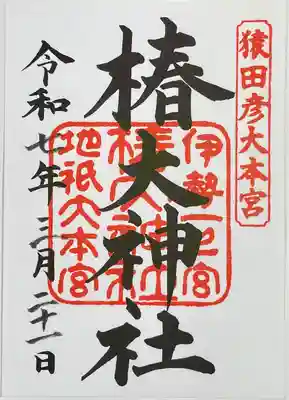 猿田彦大本宮
伊勢一之宮
椿大神社
地祇大本宮
椿大神社
令和七年三月二十一日